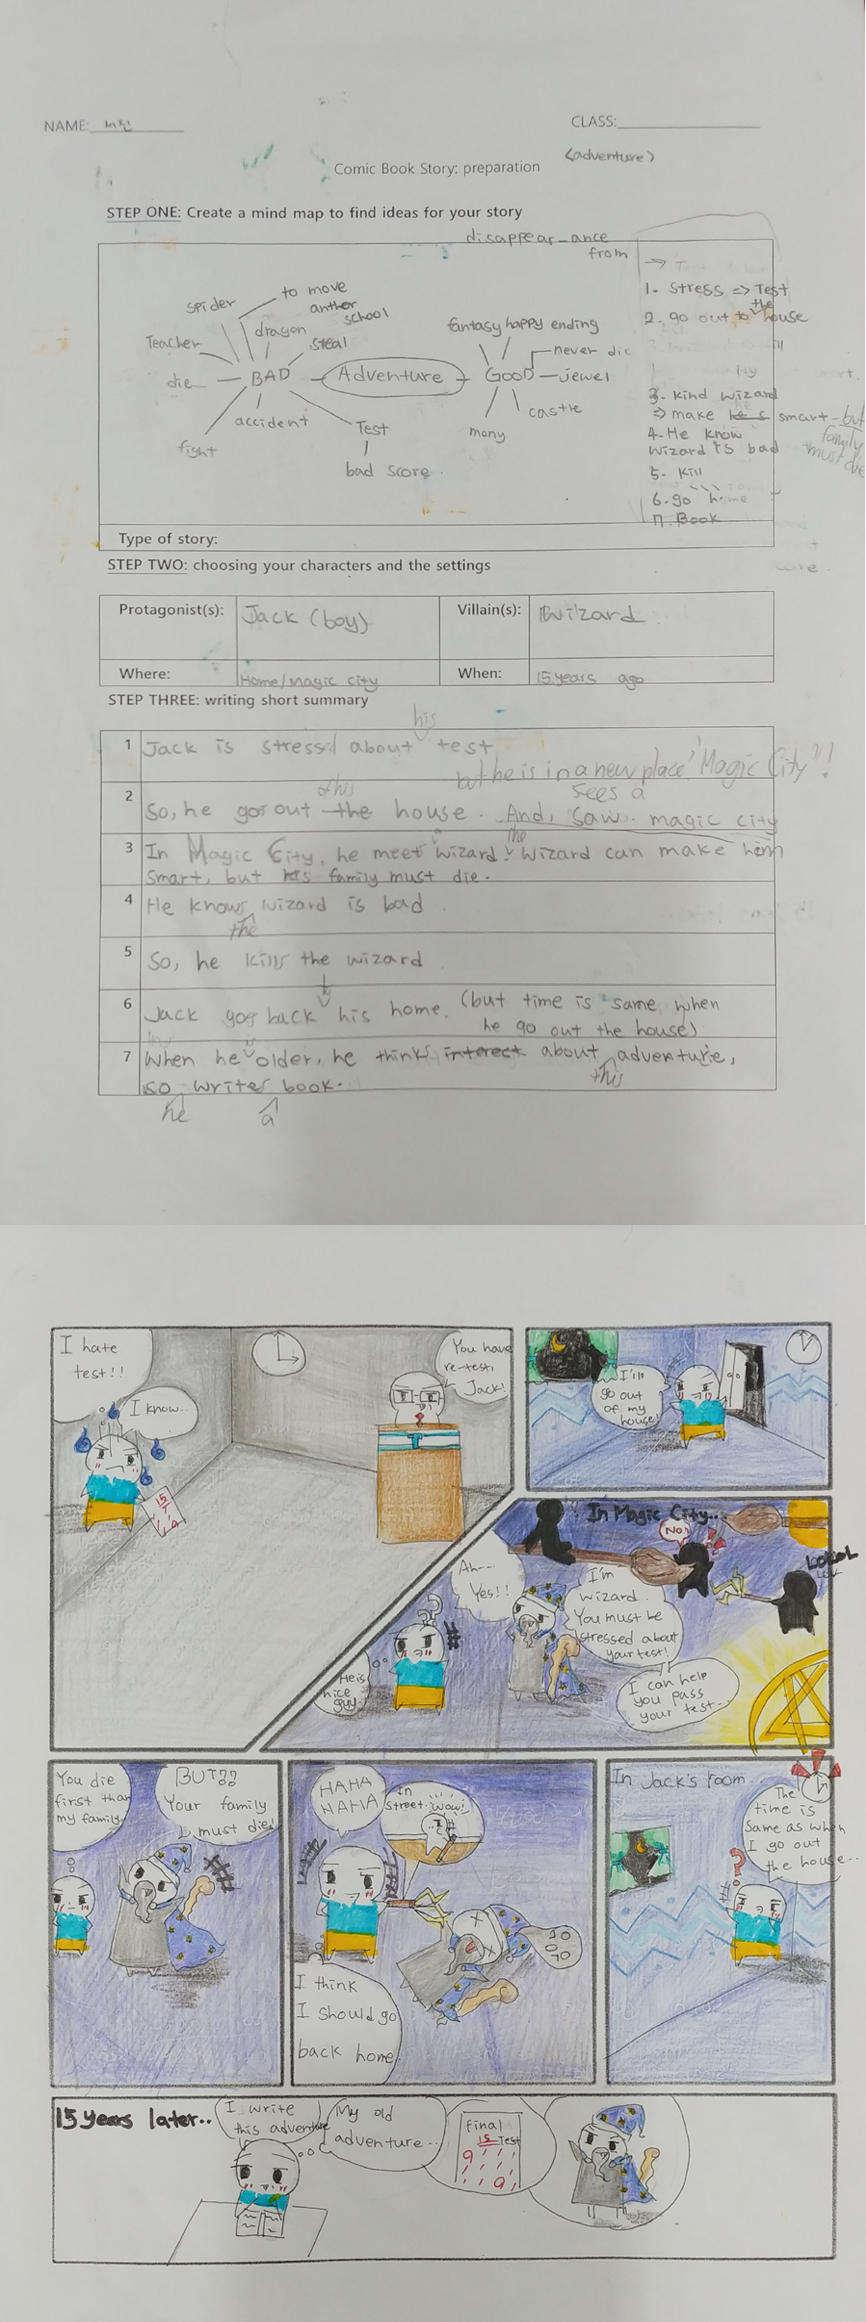 NAME:
CLASS:
Comic Book Story: preparation
(adventure)
STEP ONE: Create a mind map to find ideas for your story
disappear-ance
from
spider
to move
anther
school
Teacher
dragon
steal
die
BAD
Adventure
GOOD
fantasy
happy ending
never die
jewel
castle
mony
accident
fight
Test
bad score.
1. Stress => Test
2. go out to the house
3. kind wizard
=> make he s smart - but
family
must die
4. He know
wizard is bad
5. Kill
6. go home
7. Book
Type of story:
STEP TWO: choosing your characters and the settings
Protagonist(s):
Jack (boy)
Villain(s):
Wizard
Where:
Home/Magic city
When:
15 years ago
STEP THREE: writing short summary
his
1 Jack is stress about test
but he is in a new place "Magic City"!
of his
sees a
2 So, he go out the house. And, saw magic city
a
the
3 In Magic City, he meet wizard. wizard can make him
smart, but his family must die.
4 He knows wizard is bad.
the
5 So, he kills the wizard
6 Jack gos back his home. (but time is same when
he go out the house)
is
7 When he older, he thinks interect about adventure,
this
so writes book.
he
a
I hate
test!!
I know..
You have
re-test,
Jack!
15
I'll
go out
of my
house!
In Magic City...
No!
LOLOL
LOL
Ah--
Yes!!
I'm
wizard.
You must be
stressed about
your test!
I can help
you pass
your test...
He is
nice
guy.
You die
first than
my family.
BUT??
Your family
must die!
HAHA
HAHA
In
street.
wow!
I think
I should go
back home.
In Jack's room
The
time is
same as when
I go out
the house...
15 years later..
I write
this adventure
My old
adventure...
Final
15 Test